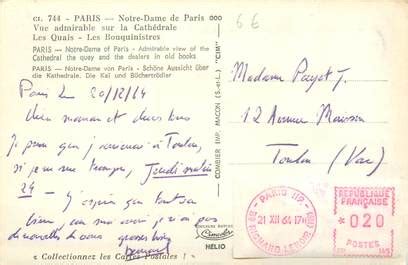 CI. 744 - PARIS — Notre-Dame de Paris
Vue admirable sur la Cathédrale
Les Quais - Les Bouquinistes
PARIS — Notre-Dame of Paris - Admirable view of the
Cathedral the quay and the dealers in old books
PARIS — Notre-Dame von Paris - Schöne Aussicht über
die Kathedrale. Die Kai und Büchertrödler
Paris le 20/12/64
Chère maman et
Je pense que j'arriverai à Toulon,
si je ne me trompe, Jeudi matin
24 - J'espère que tout va
bien, car
de nouvelles de vous grosses bises
« Collectionnez les Cartes Postales ! »
COMBIER IMP. MACON (S.-et-L.) "CIM"
Combier
HÉLIO
6 €
Madame Payet J.
12 Avenue
Toulon (Var)
PARIS 11P.
21 XII 64 17H
RICHARD LENOIR
RÉPUBLIQUE
FRANÇAISE
020
POSTES